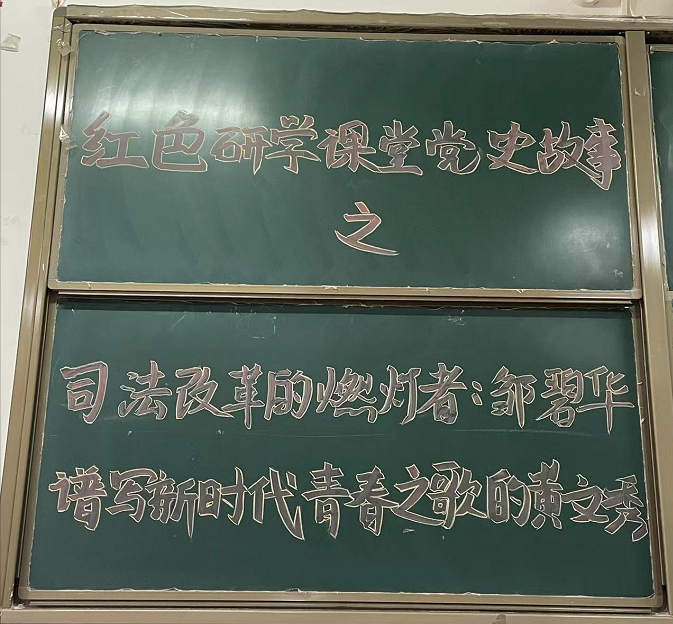 红色研学课堂党史故事
之
司法改革的燃灯者:邹碧华
谱写新时代青春之歌的黄文秀